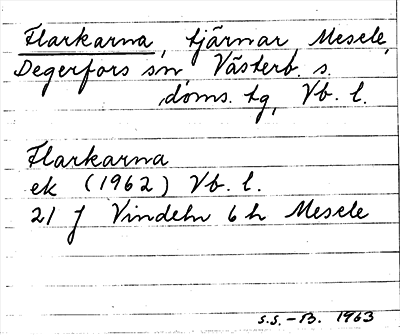 Flarkarna, tjärnar, Mesele,
Degerfors sn, Västerb. s.
doms. tg, Vb. l.
Flarkarna
ek (1962) Vb. l.
21 J Vindeln 6 h Mesele
S.S. – B. 1963